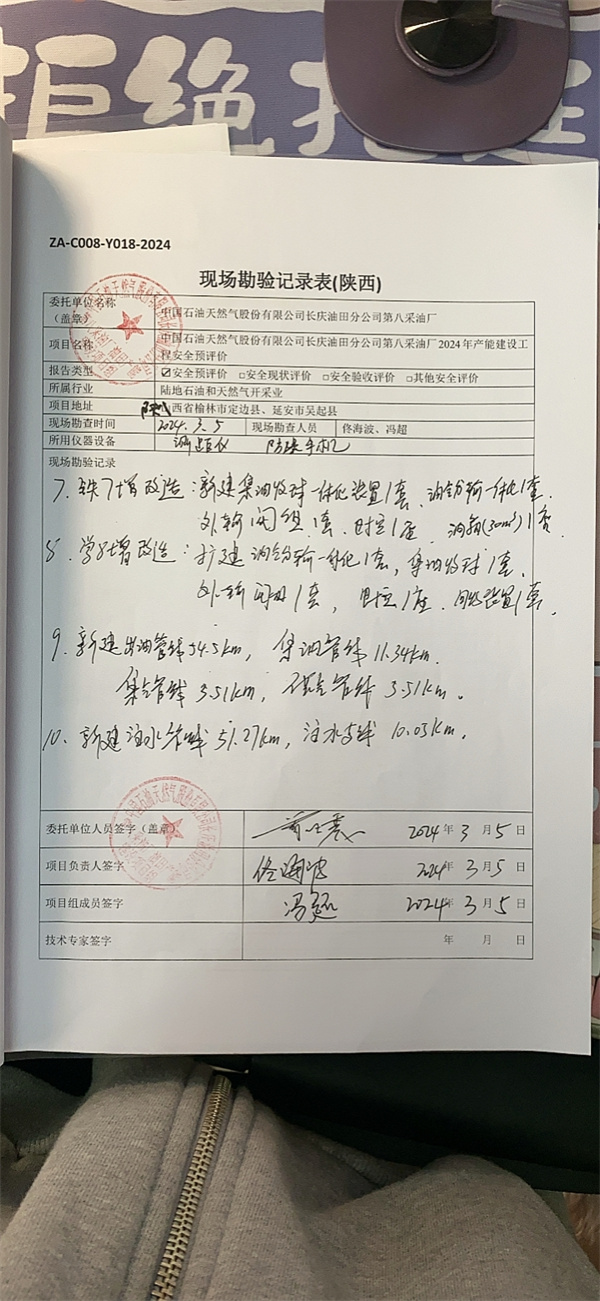 拒绝
ZA-C008-Y018-2024
现场勘验记录表(陕西)
委托单位名称
（盖章）
中国石油天然气股份有限公司长庆油田分公司第八采油厂
项目名称
中国石油天然气股份有限公司长庆油田分公司第八采油厂2024年产能建设工
程安全预评价
报告类型 ☑安全预评价 □安全现状评价 □安全验收评价 □其他安全评价
所属行业 陆地石油和天然气开采业
项目地址 陕西省榆林市定边县、延安市吴起县
现场勘查时间 2024.3.5 现场勘查人员 佟海波、冯超
所用仪器设备 测距仪 防爆手机
现场勘验记录
7、铁7增改造：新建集油收球一体化装置1套、油气分输一体化1套、
外输阀组1套、 1座、油箱(30m³)1套、
8、学 增改造：扩建油气分输一体化1套，集油收球1套、
外输阀组1套， 1座、 装置1套、
9、新建出油管线54.5km，集油管线11.34km、
集气管线3.51km， 管线3.51km。
10、新建注水管线51.27km，注水支线10.03km。
委托单位人员签字（盖章） 2024年3月5日
项目负责人签字 佟海波 2024年3月5日
项目组成员签字 冯超 2024年3月5日
技术专家签字 年 月 日